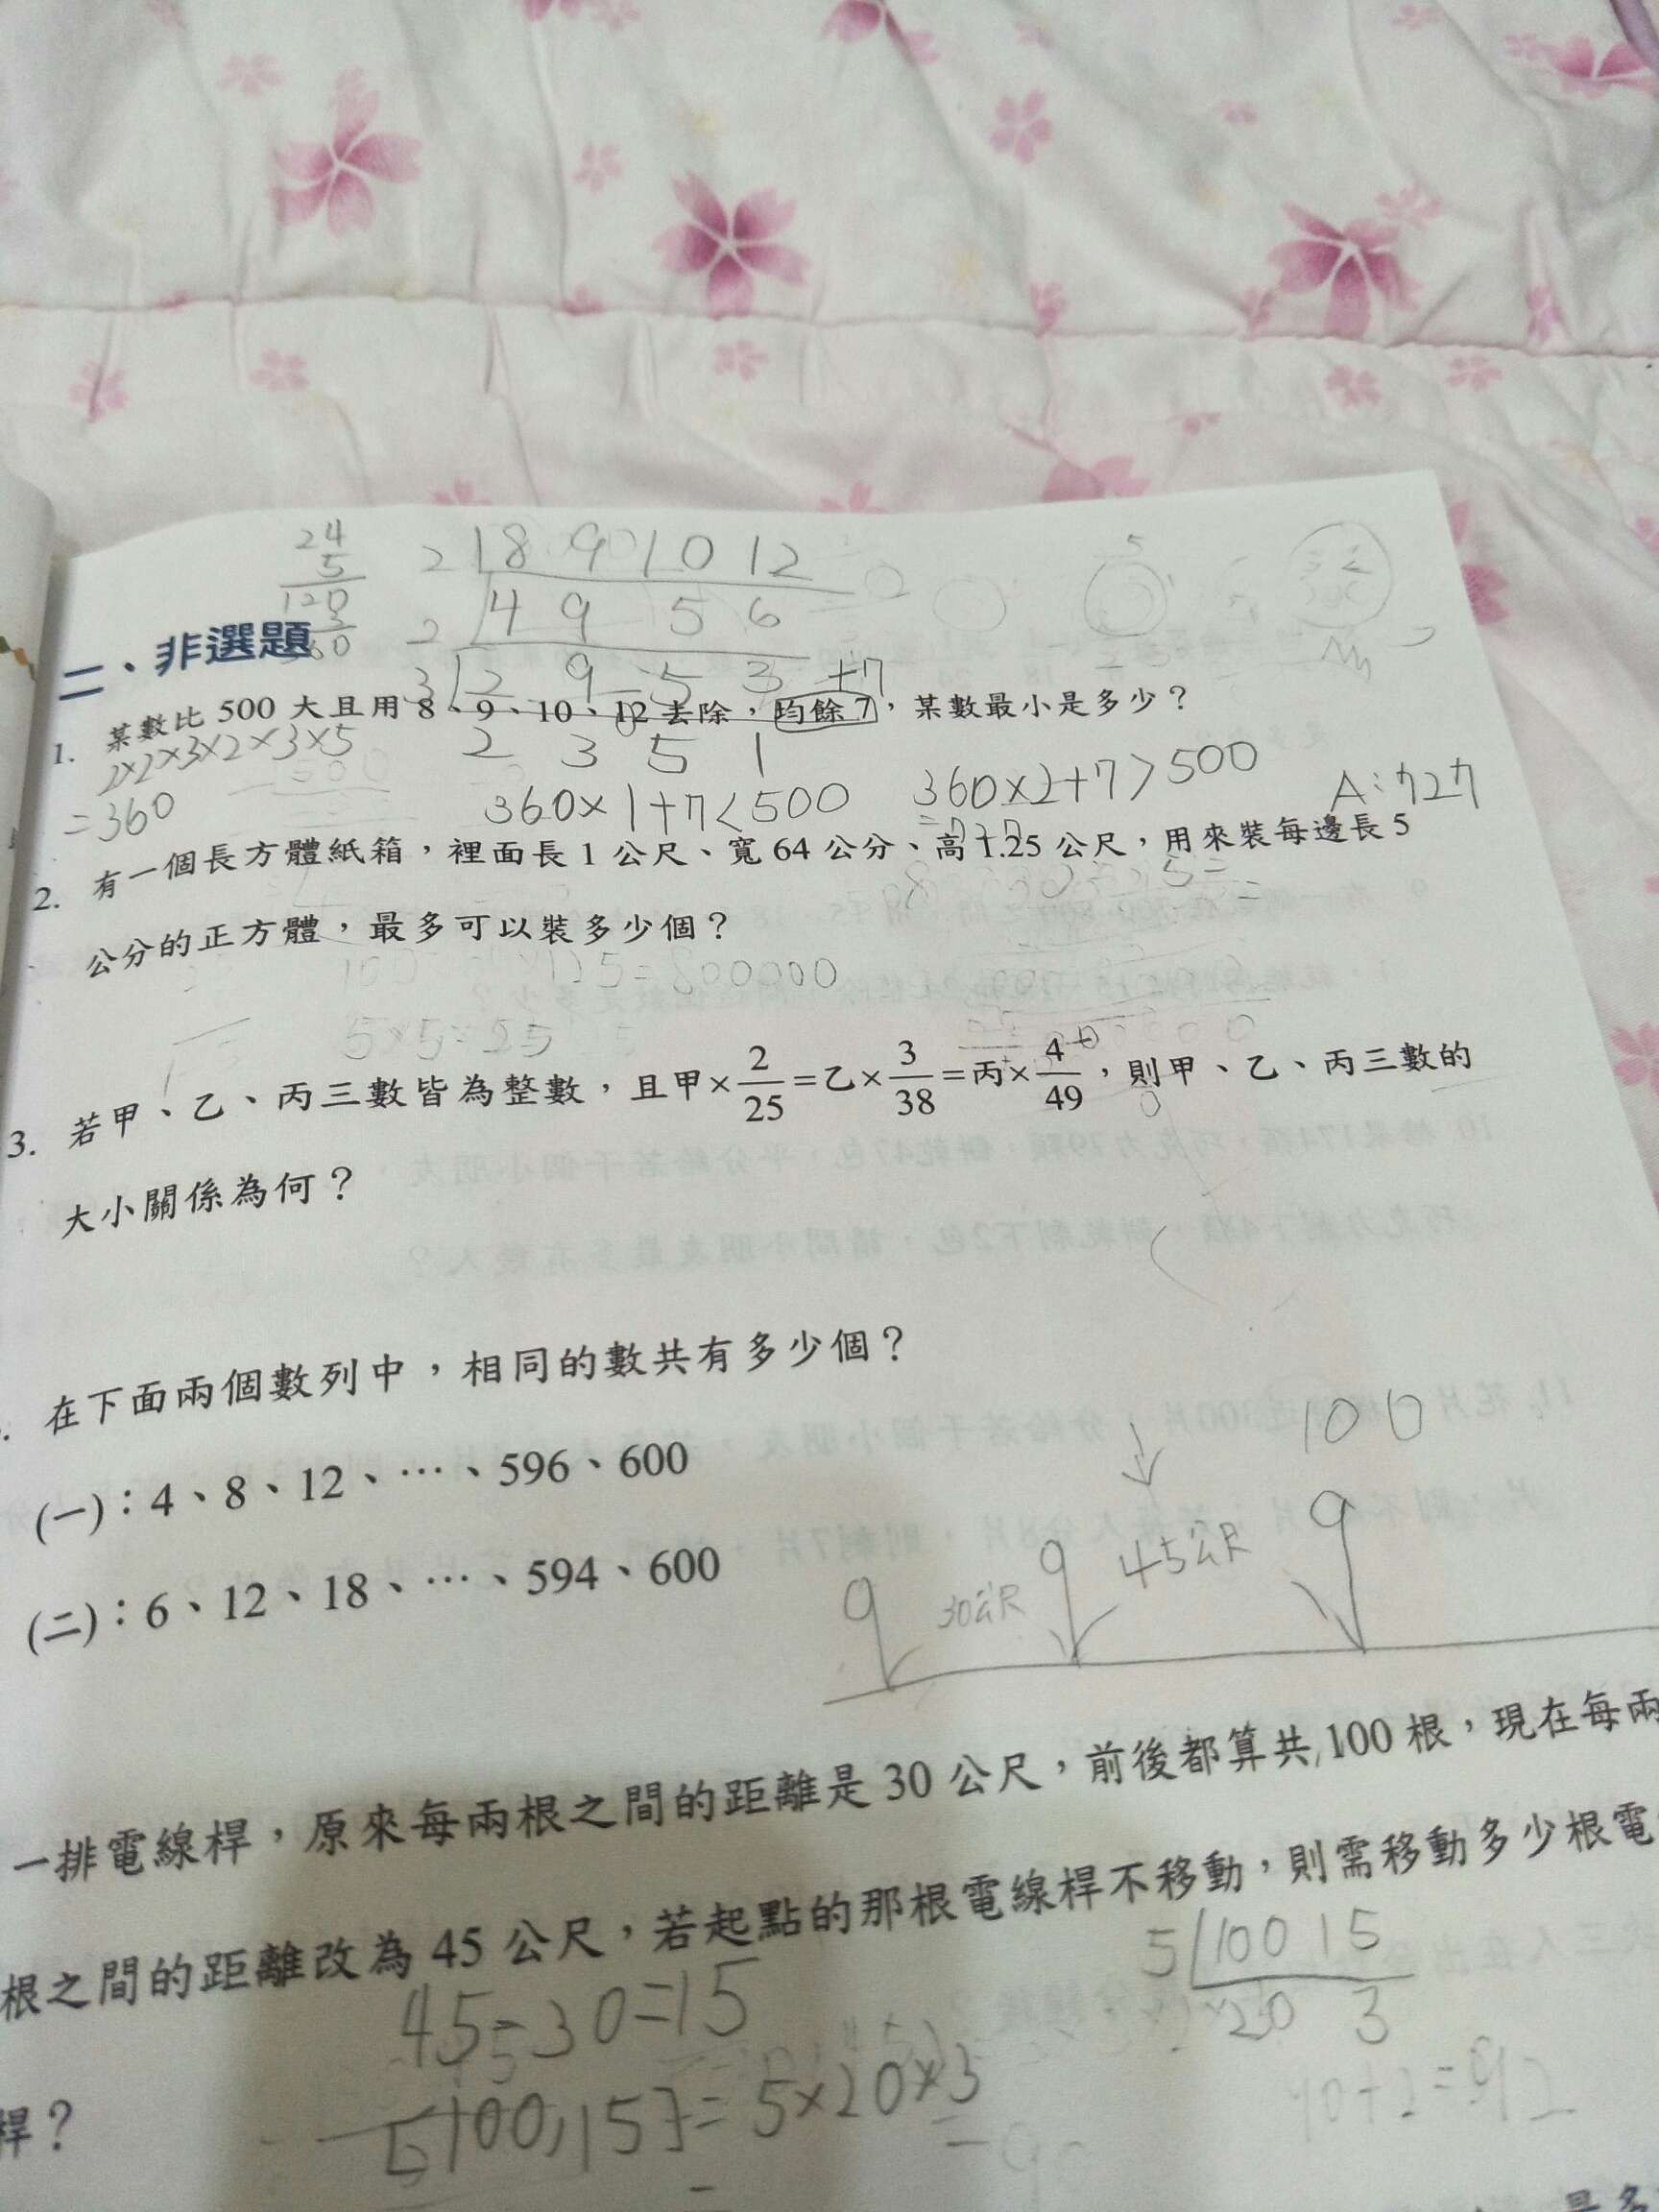 24
5
120
3
360
2 8 9 10 12
2 4 9 5 6
3 2 9 5 3 +7
2 3 5 1
二、非選題
1. 某數比 500 大且用 8、9、10、12 去除，均餘 7，某數最小是多少？
2×2×3×2×3×5
=360
360×1+7<500
360×2+7>500
=727
A:727
2. 有一個長方體紙箱，裡面長 1 公尺、寬 64 公分、高 1.25 公尺，用來裝每邊長 5
公分的正方體，最多可以裝多少個？
5×5=25
3. 若甲、乙、丙三數皆為整數，且甲×2/25=乙×3/38=丙×4/49，則甲、乙、丙三數的
大小關係為何？
在下面兩個數列中，相同的數共有多少個？
(一)：4、8、12、…、596、600
(二)：6、12、18、…、594、600
100
30公尺
45公尺
一排電線桿，原來每兩根之間的距離是 30 公尺，前後都算共 100 根，現在每兩
根之間的距離改為 45 公尺，若起點的那根電線桿不移動，則需移動多少根電
桿？
45-30=15
5 100 15
20 3
[100,15]=5×20×3
90+2=92